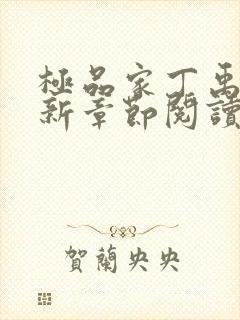 極品家丁禹
新章節閱讀
賀蘭央央